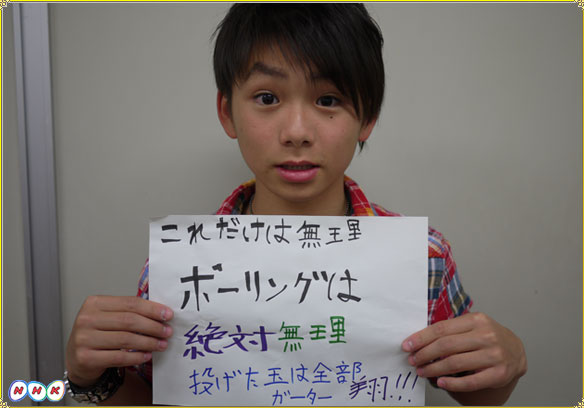 これだけは無理
ボーリングは
絶対無理
投げた玉は全部
ガーター 翔!!!
NHK